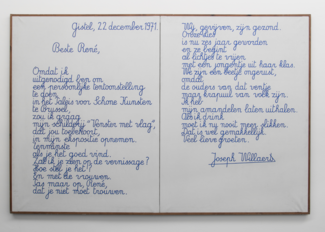 Gistel, 22 december 1971.
Beste René,
Omdat ik
uitgenodigd ben om
een persoonlijke tentoonstelling
te doen
in het Paleis voor Schone Kunsten
te Brussel,
zou ik graag
mijn schilderij "Venster met vlag",
dat jou toebehoort,
in mijn ekspositie opnemen.
Tenminste
als je het goed vindt.
Zal ik je zien op de vernissage?
Hoe stel je het?
En met de vrouwen.
Pas maar op, René,
dat je niet moet trouwen.
Wij, gevijven, zijn gezond.
is nu zes jaar geworden
en ze begint
al lichtjes te vrijen
met een jongentje uit haar klas.
We zijn een beetje ongerust,
omdat
de ouders van dat ventje
maar krapuul van volk zijn.
Ik heb
mijn amandelen laten uithalen.
Als ik drink
moet ik nu nooit meer slikken.
Dat is wel gemakkelijk.
Veel lieve groeten.
Joseph Willaert.